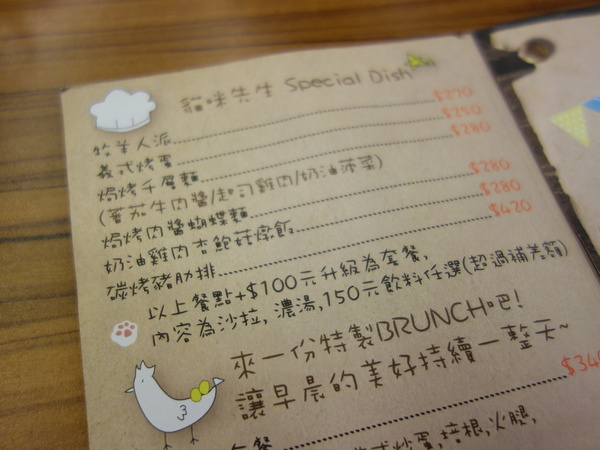 貓咪先生 Special Dish
牧羊人派 $270
義式烤蛋 $250
焗烤千層麵 $280
(蕃茄牛肉醬/起司雞肉/奶油菠菜)
焗烤肉醬蝴蝶麵 $280
奶油雞肉杏鮑菇燉飯 $280
碳烤豬肋排 $420
以上餐點+$100元升級為套餐,
內容為沙拉, 濃湯,150元飲料任選(超過補差額)
來一份特製BRUNCH吧!
讓早晨的美好持續一整天~
$340
炒蛋,培根,火腿,